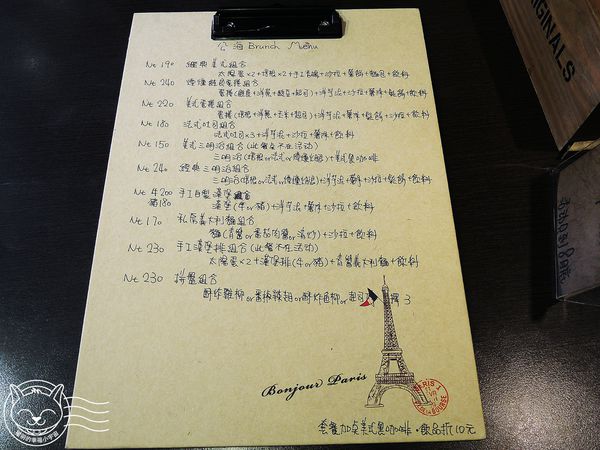 公海 Brunch Menu
Nt 190 經典美式組合
太陽蛋×2+培根×2+手工香腸+沙拉+薯餅+麵包+飲料
Nt 240 煙燻鮭魚蛋捲組合
蛋捲(鮭魚+洋蔥+起司)+洋芋泥+沙拉+薯條+鬆餅+飲料
Nt 220 美式蛋捲組合
蛋捲(培根+洋蔥+玉米+起司)+洋芋泥+薯條+鬆餅+沙拉+飲料
Nt 180 法式吐司組合
法式吐司×3+洋芋泥+沙拉+薯條+飲料
Nt 150 美式三明治組合(此餐不在活動)
三明治(培根or法式or煙燻鮭魚)+美式黑咖啡
Nt 240 經典三明治組合
三明治(培根or法式or煙燻鮭魚)+洋芋泥+薯條+鬆餅+沙拉+飲料
Nt 牛200 手工自製漢堡
豬180 漢堡(牛or豬)+洋芋泥+薯條+沙拉+飲料
Nt 170 私房義大利麵組合
麵(青醬or番茄肉醬or清炒)+沙拉+飲料
Nt 230 手工漢堡排組合(此餐不在活動)
太陽蛋×2+漢堡排(牛or豬)+青醬義大利麵+飲料
Nt 230 拼盤組合
酥炸雞柳or香檸雞翅or酥炸魚柳or起司 擇3
Bonjour Paris
PARIS 1
R. DU LOUVRE
套餐加點美式黑咖啡・飲品折10元
ORIGINALS